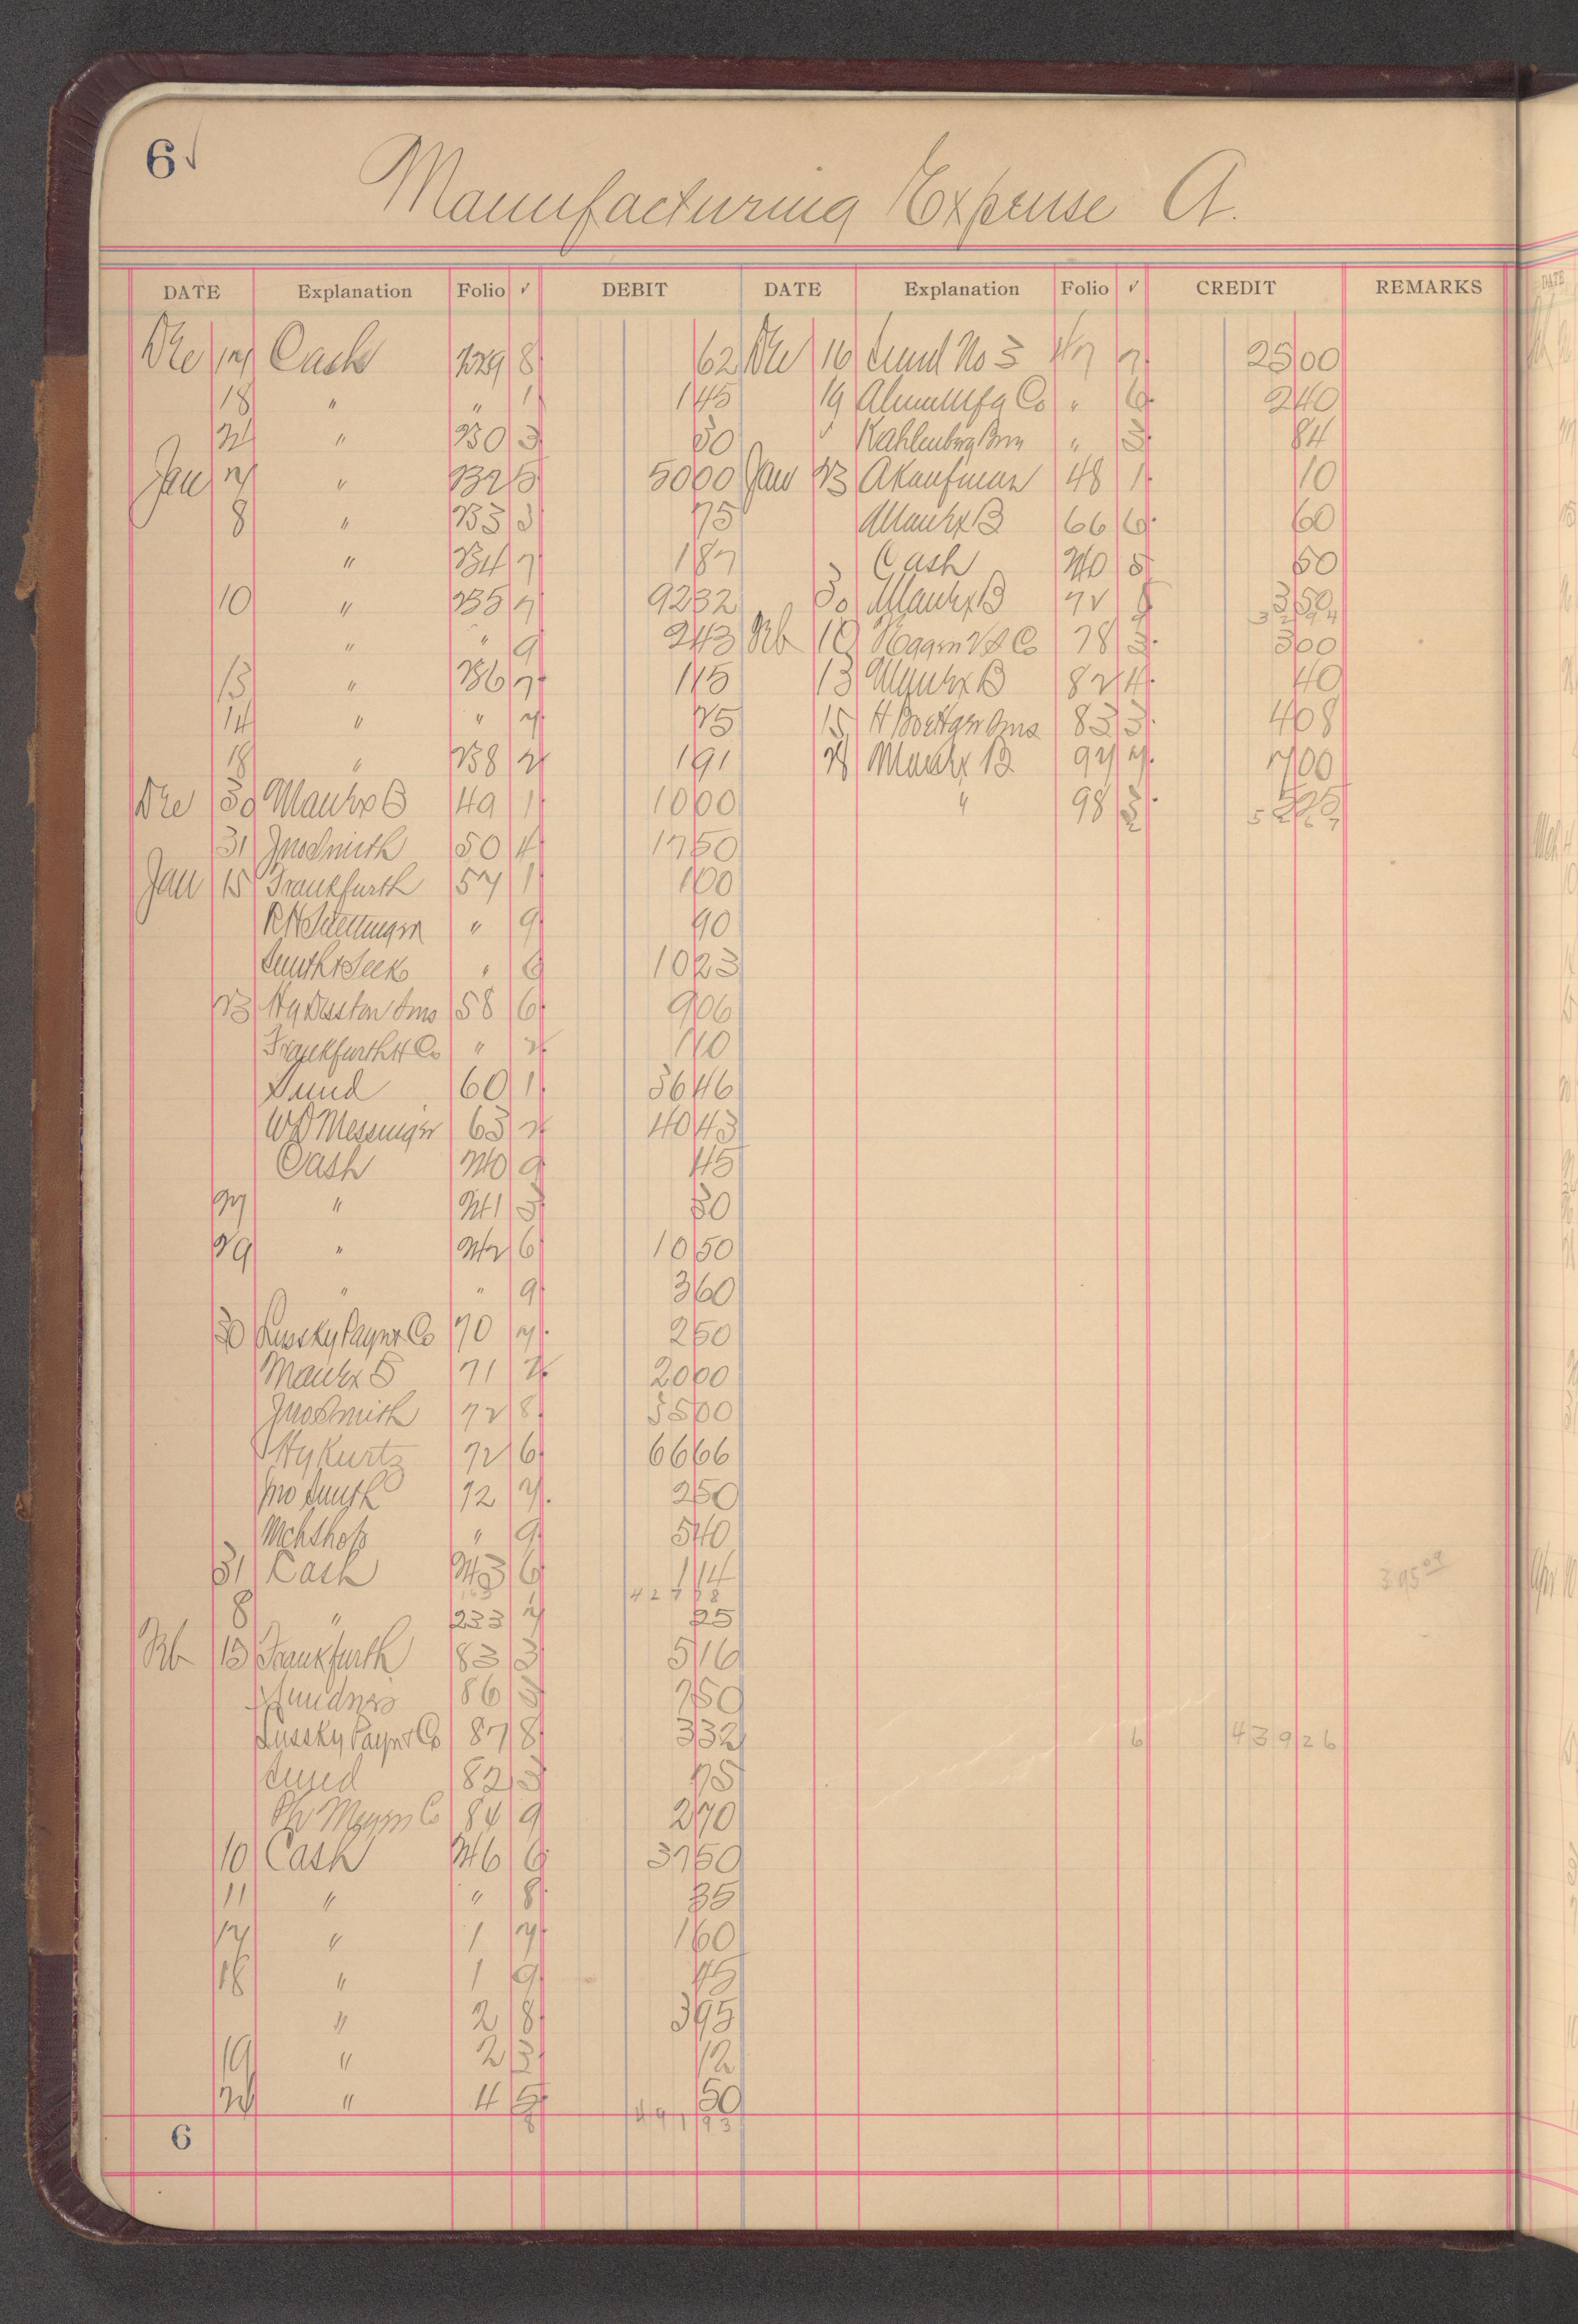 6✓
Manufacturing Expense A.
DATE Explanation Folio ✓ DEBIT DATE Explanation Folio ✓ CREDIT REMARKS
Dec 17 Cash 229 8 62 Dec 16 Sund No 3 47 7 25 00
18 " " 1 1 45 19 Alum Mfg Co " 6 2 40
24 " 230 3 30 " Kahlenberg Bros " 3 84
Jan 2 " 232 5 50 00 Jan 23 A Kaufman 48 1 10
8 " 233 3 75 Manfx B 66 6 60
" 234 7 1 87 Cash 240 5 50
10 " 235 7 92 32 30 Manfx B 72 8 3 50
" " 9 2 43 Feb 10 78 3 3 00
32 94
13 " 236 7 1 15 13 Manfx B 82 4 40
14 " " 7 25 15 H Boettger Sons 83 3 4 08
18 " 238 2 1 91 28 Manfx B 97 7 7 00
Dec 30 Manfx B 49 1 10 00 " 98 3 5 25
2 52 67
31 Jno Smith 50 4 17 50
Jan 15 Frankfurth 57 1 1 00
" 9 90
" 6 10 23
23 Hy Disston Sons 58 6 9 06
Frankfurth H Co " 2 1 10
Sund 60 1 36 46
W D Messinger 63 2 40 43
Cash 240 9 45
27 " 241 3 30
29 " 242 6 10 50
" " 9 3 60
30 Lussky Payn & Co 70 7 2 50
Manfx B 71 2 20 00
Jno Smith 72 8 35 00
Hy Kurtz 72 6 66 66
Jno Smith 72 7 2 50
Mch Shop " 9 5 40
31 Cash 243 6 1 14
427 78
8 " 233 7 25
Feb 13 Frankfurth 83 3 5 16
86 7 50
Lussky Payn & Co 87 8 3 32
Sund 82 3 75
84 9 2 70
10 Cash 246 6 37 50
11 " " 8 35
17 " 1 7 1 60
18 " 1 9 45
" 2 8 3 95
19 " 2 3 12
24 " 4 5 50
8 491 93
3 95 09
6 439 26
6